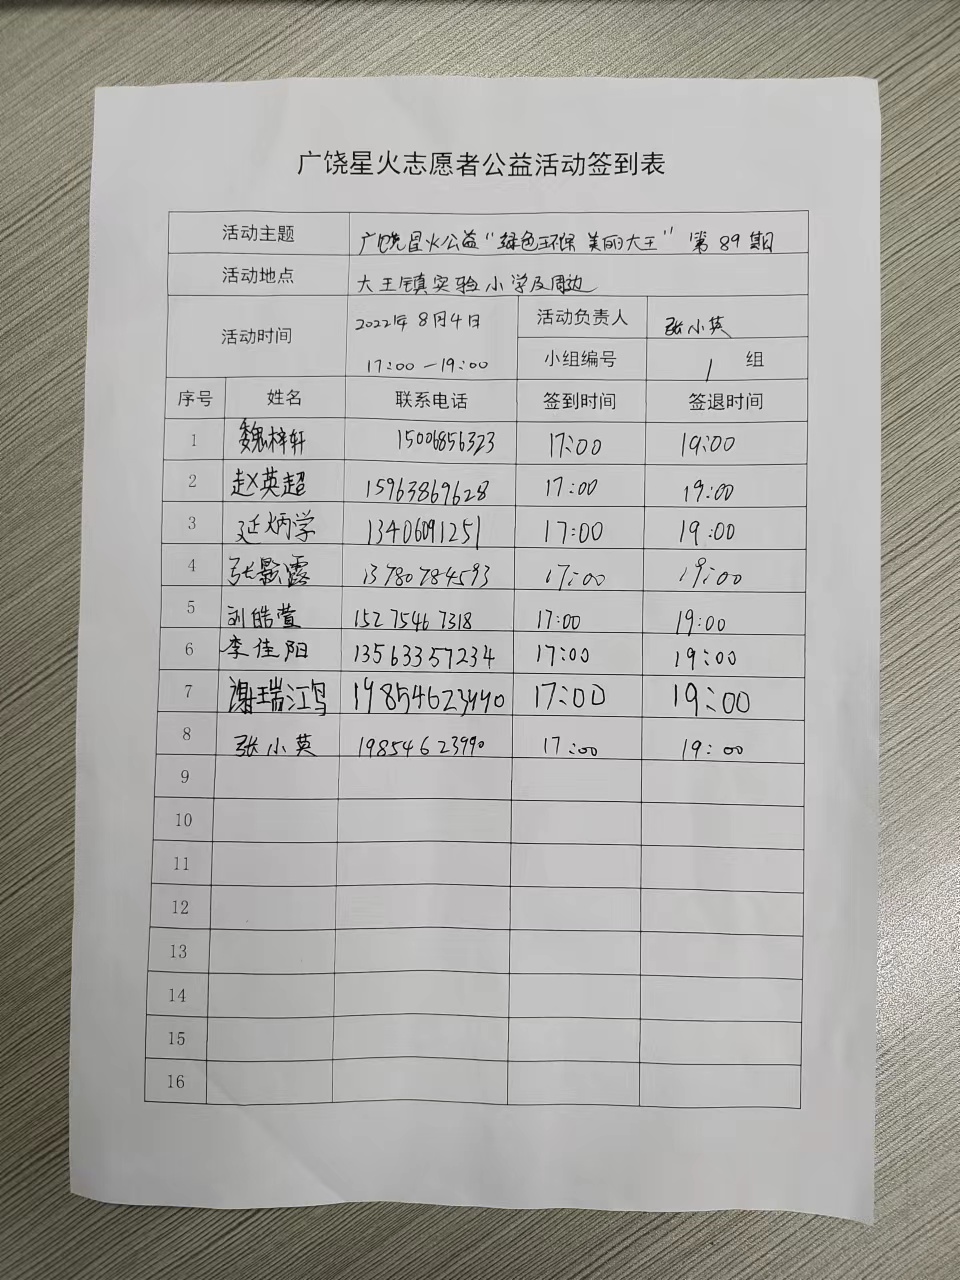 广饶星火志愿者公益活动签到表
活动主题 广饶星火公益“绿色环保 美丽大王” 第89期
活动地点 大王镇实验小学及周边
活动时间 2022年8月4日 17:00—19:00 活动负责人 张小英
小组编号 1 组
序号 姓名 联系电话 签到时间 签退时间
1 魏梓轩 15006856323 17:00 19:00
2 赵英超 15963869628 17:00 19:00
3 延炳学 13406091251 17:00 19:00
4 张影露 13780784593 17:00 19:00
5 刘皓萱 15275467318 17:00 19:00
6 李佳阳 13563357234 17:00 19:00
7 谢瑞江 19854623990 17:00 19:00
8 张小英 19854623990 17:00 19:00
9
10
11
12
13
14
15
16